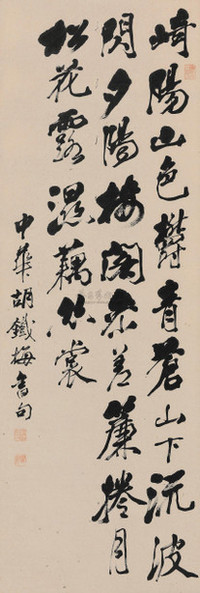 崎陽山色鬱青蒼山下流波
閃夕陽樓閣參差簾捲月
松花露濕藕絲裳
中華胡鐵梅句